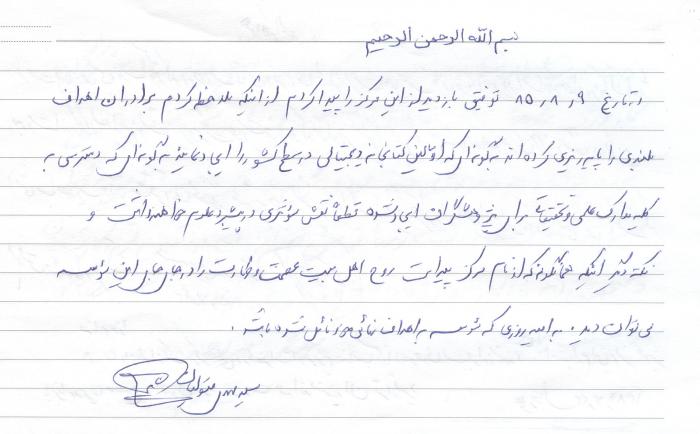 بسم الله الرحمن الرحیم
در تاریخ ۸۵٫۸٫۹ توفیق بازدید از این مرکز را پیدا کردم از اینکه ملاحظه کردم برادران اهداف
بلندی را پایه‌ریزی کرده‌اند به‌گونه‌ای که اولین کتابخانه دیجیتالی در سطح کشور را ایجاد نمایند به‌گونه‌ای که دسترسی به
کلیه مدارک علمی و تحقیقاتی برای پژوهشگران ایجاد شده قطعاً نقش مؤثری در پیشبرد علوم خواهد داشت و
نکته دیگر اینکه همانگونه که از نام مرکز پیداست روح اهل بیت عصمت و طهارت را در جای جای این مؤسسه
می‌توان دید. به امید روزی که مؤسسه به اهداف نهائی خود نائل شده باشد.
سید مهدی